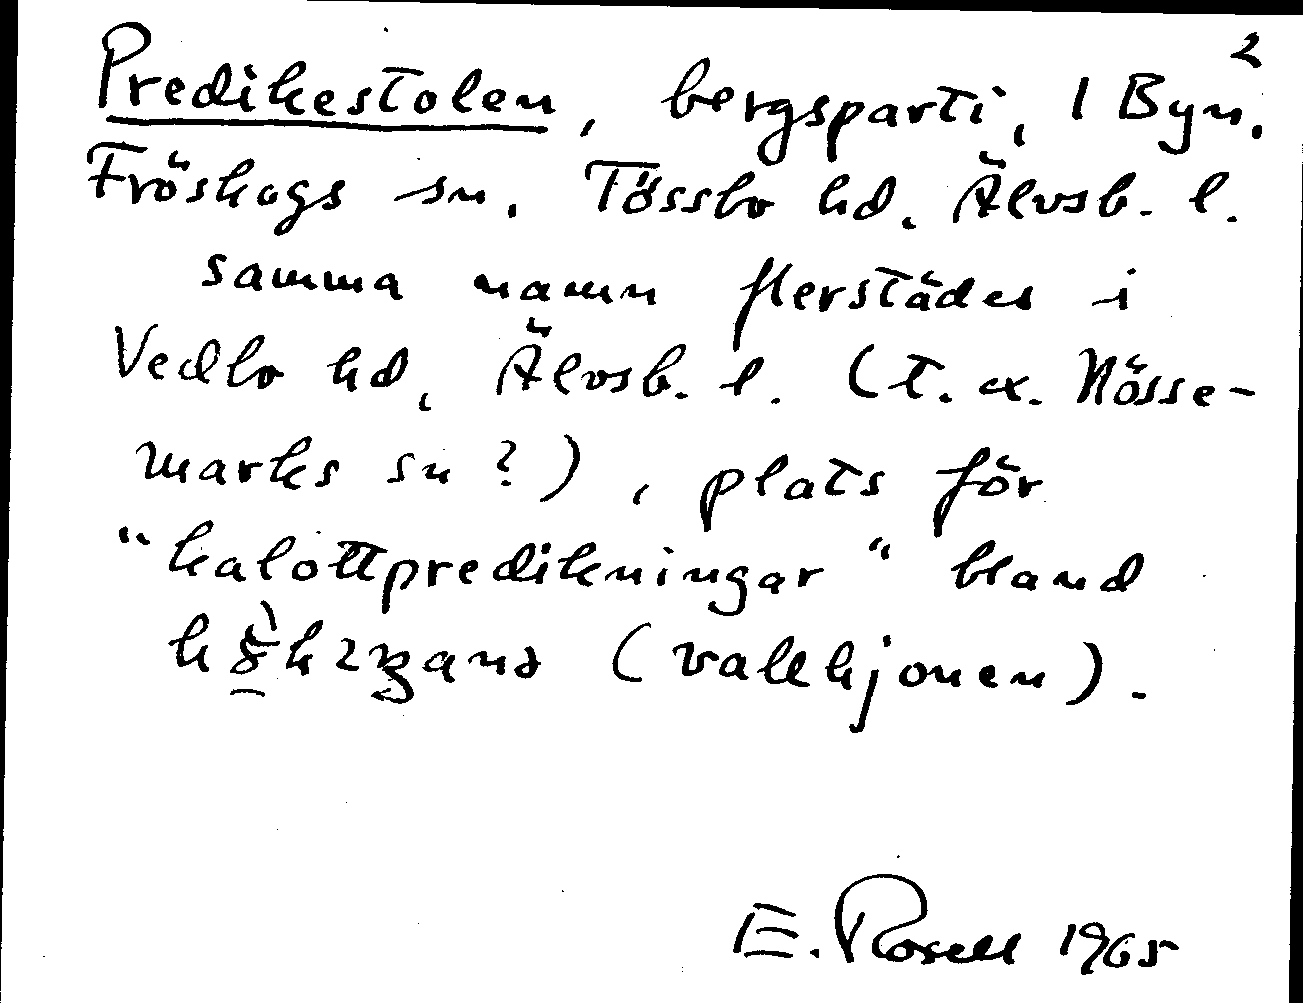 2
Predikestolen, bergsparti, 1 Byn.
Fröskogs sn. Tössbo hd. Älvsb. l.
samma namn flerstädes i
Vedbo hd, Älvsb. l. (t. ex. Nösse-
marks sn?), plats för
"kalottpredikningar" bland
(vallhjonen).
E. Rosell 1965